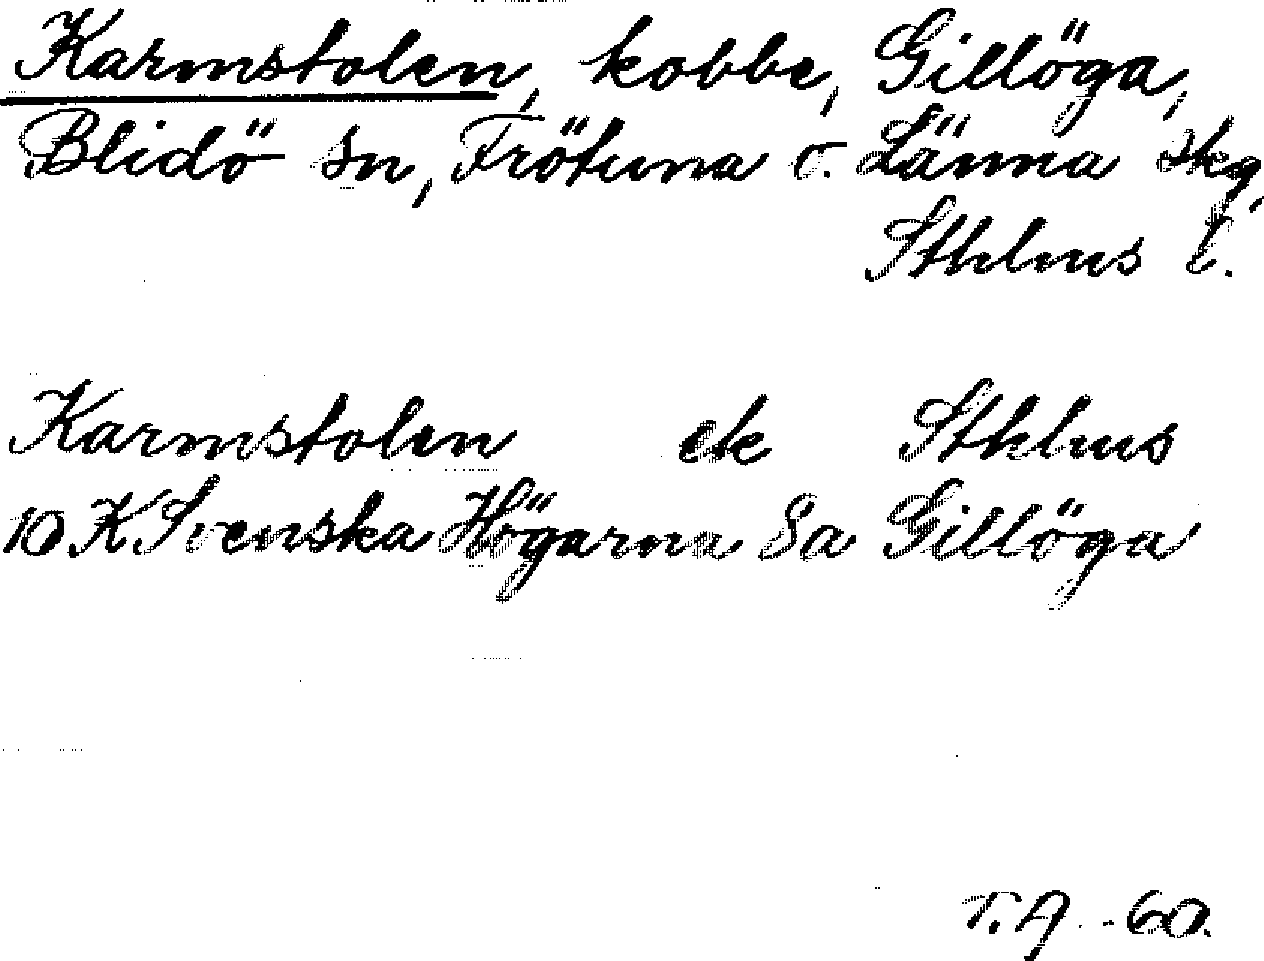 Karmstolen, kobbe, Gillöga,
Blidö sn, Frötuna o. Länna skg,
Sthlms l.
Karmstolen ek Sthlms
10 K Svenska Högarna 8a Gillöga
T.A. -60.